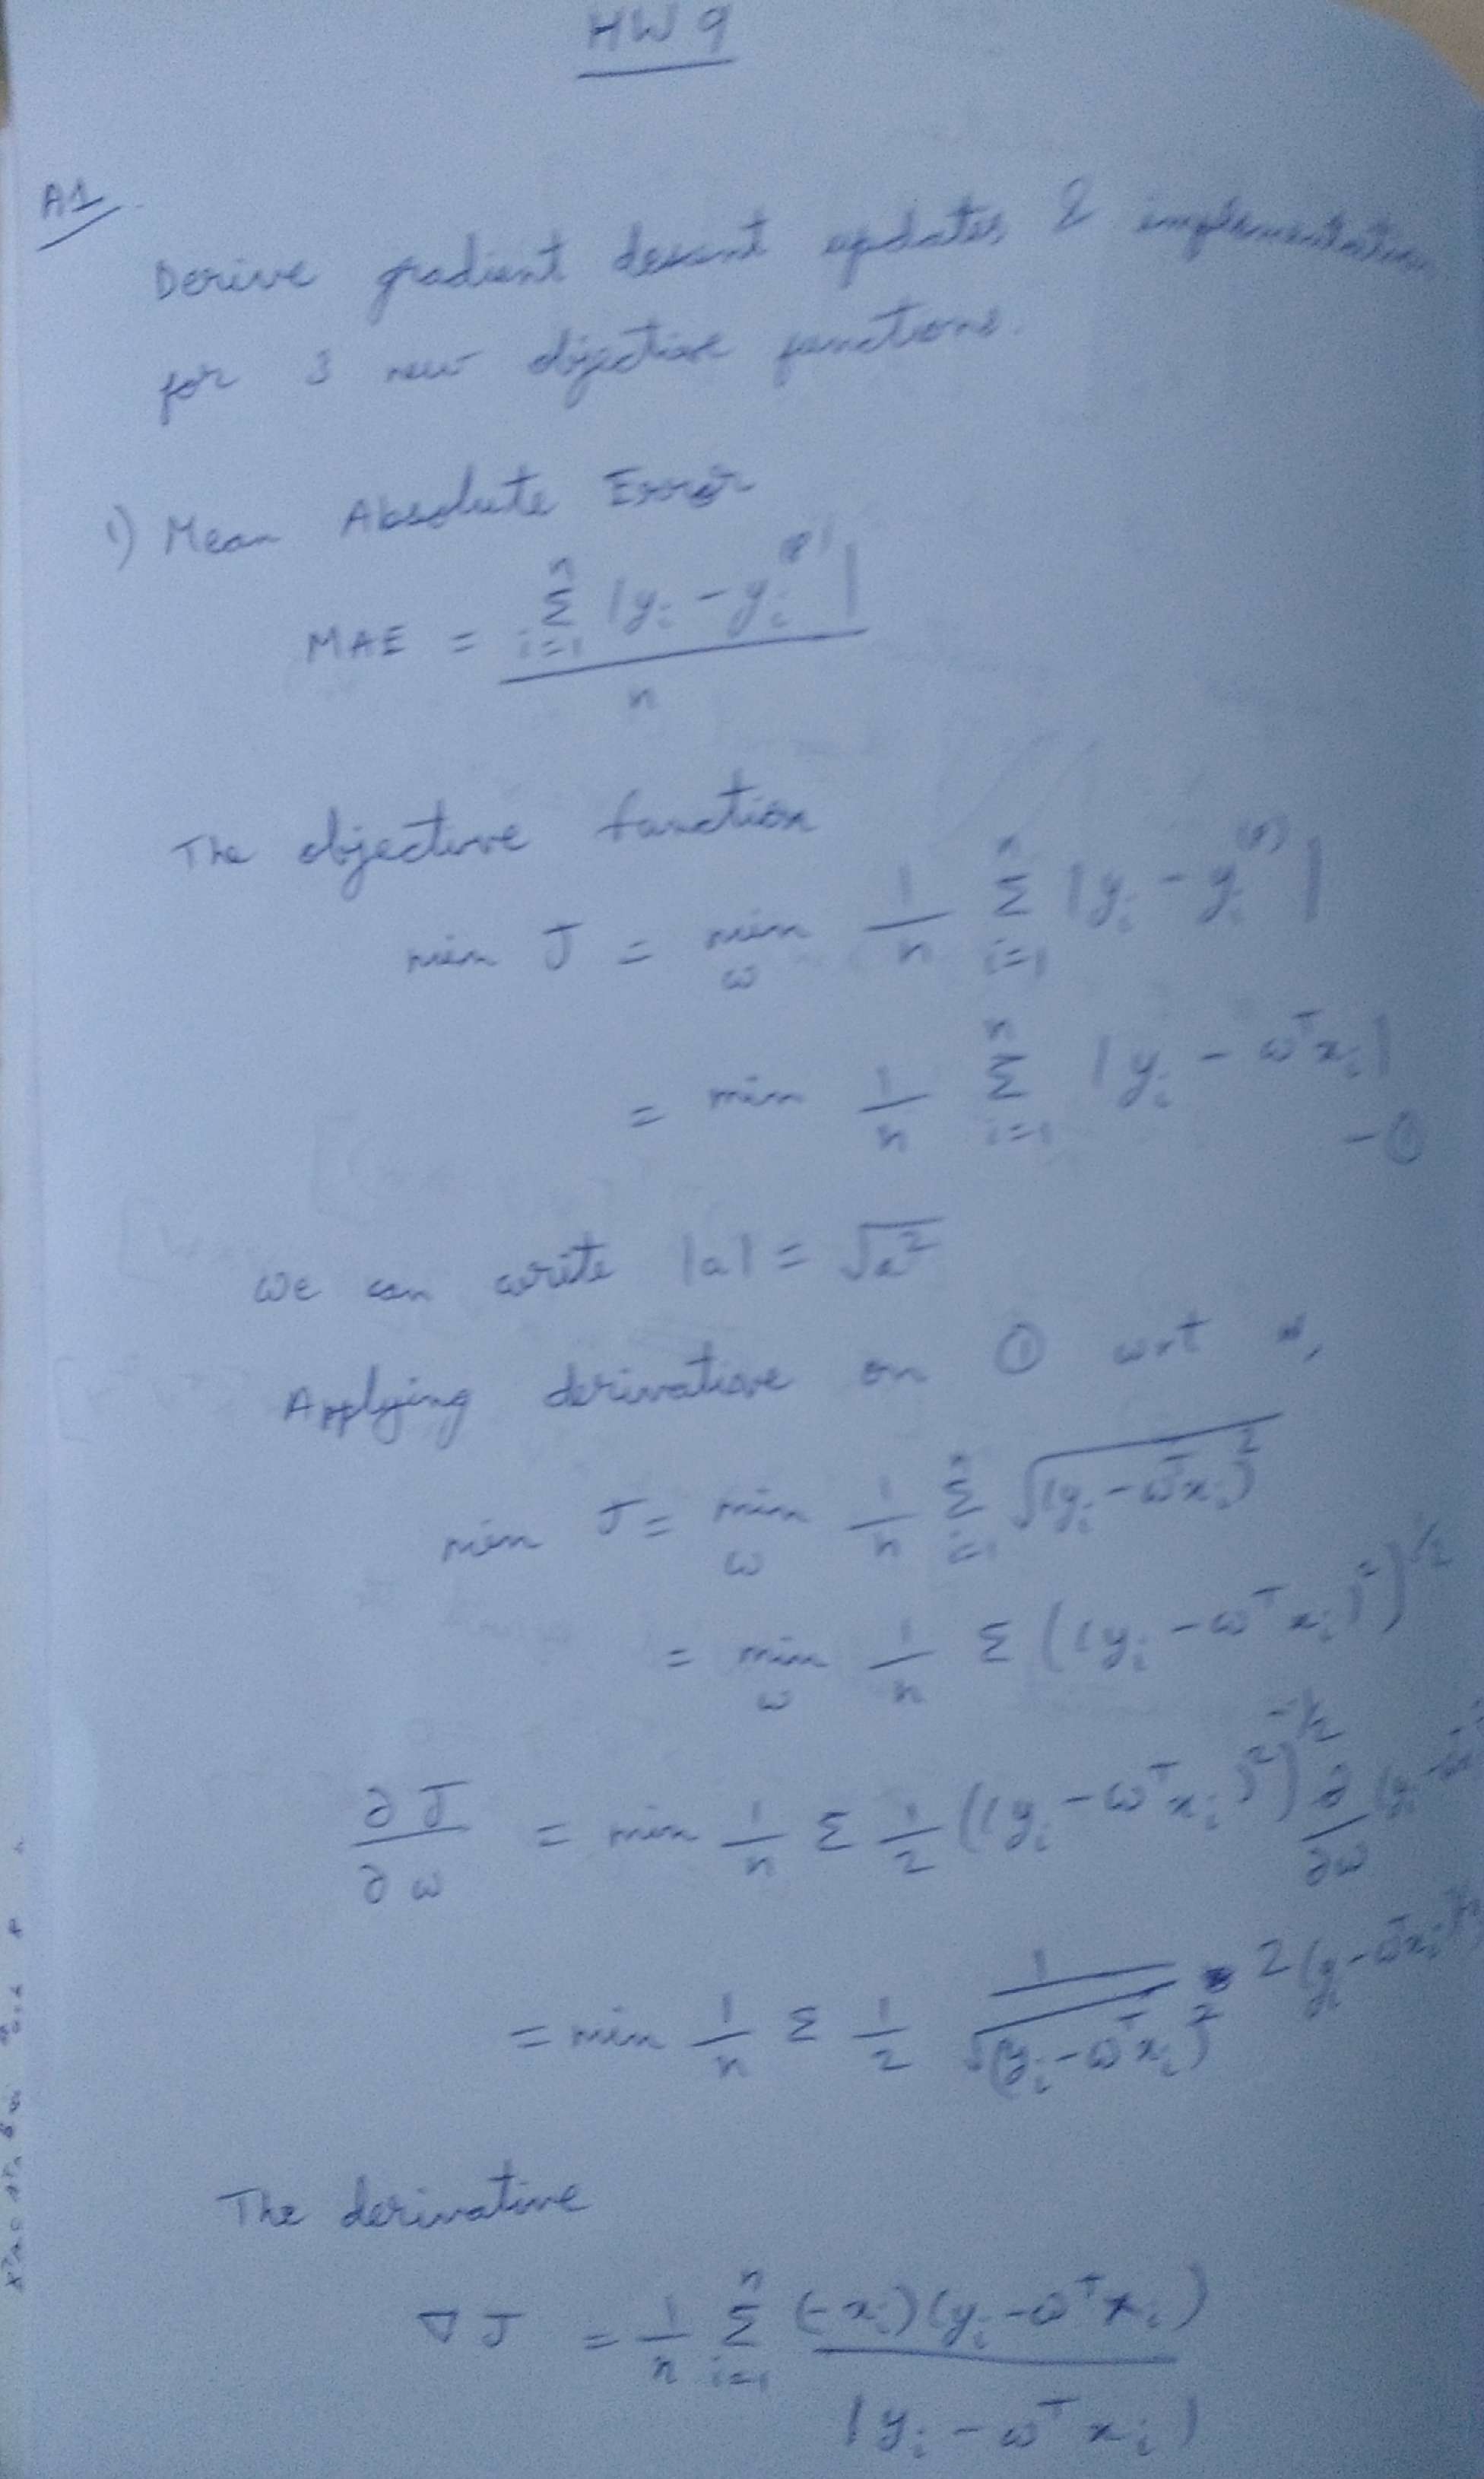 HW 9
A1.
Derive gradient descent updates & implementation
for 3 new objective functions.
1) Mean Absolute Error
MAE = \frac{\sum_{i=1}^{n} |y_i - y_i^{(p)}|}{n}
The objective function
min J = min_ω \frac{1}{n} \sum_{i=1}^{n} |y_i - y_i^{(p)}|
= min \frac{1}{n} \sum_{i=1}^{n} |y_i - ω^T x_i| - ①
We can write |a| = \sqrt{a^2}
Applying derivative on ① wrt
min J = min_ω \frac{1}{n} \sum_{i=1}^{n} \sqrt{(y_i - ω^T x_i)^2}
= min_ω \frac{1}{n} Σ ((y_i - ω^T x_i)^2)^{1/2}
\frac{∂J}{∂ω} = min \frac{1}{n} Σ \frac{1}{2} ((y_i - ω^T x_i)^2)^{-1/2} \frac{∂}{∂ω}
= min \frac{1}{n} Σ \frac{1}{2} \frac{1}{\sqrt{(y_i - ω^T x_i)^2}} 2(y_i - ω^T x_i)
The derivative
∇J = \frac{1}{n} \sum_{i=1}^{n} \frac{(-x_i)(y_i - ω^T x_i)}{|y_i - ω^T x_i|}